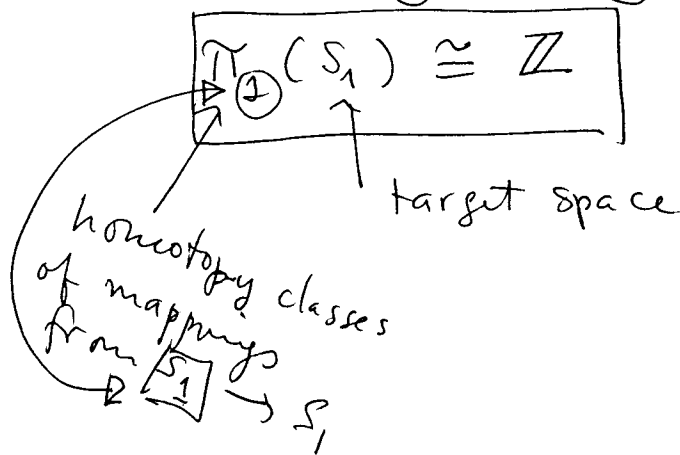 π₁ (S₁) ≅ ℤ
target space
homotopy classes
of mappings
from S₁ → S₁